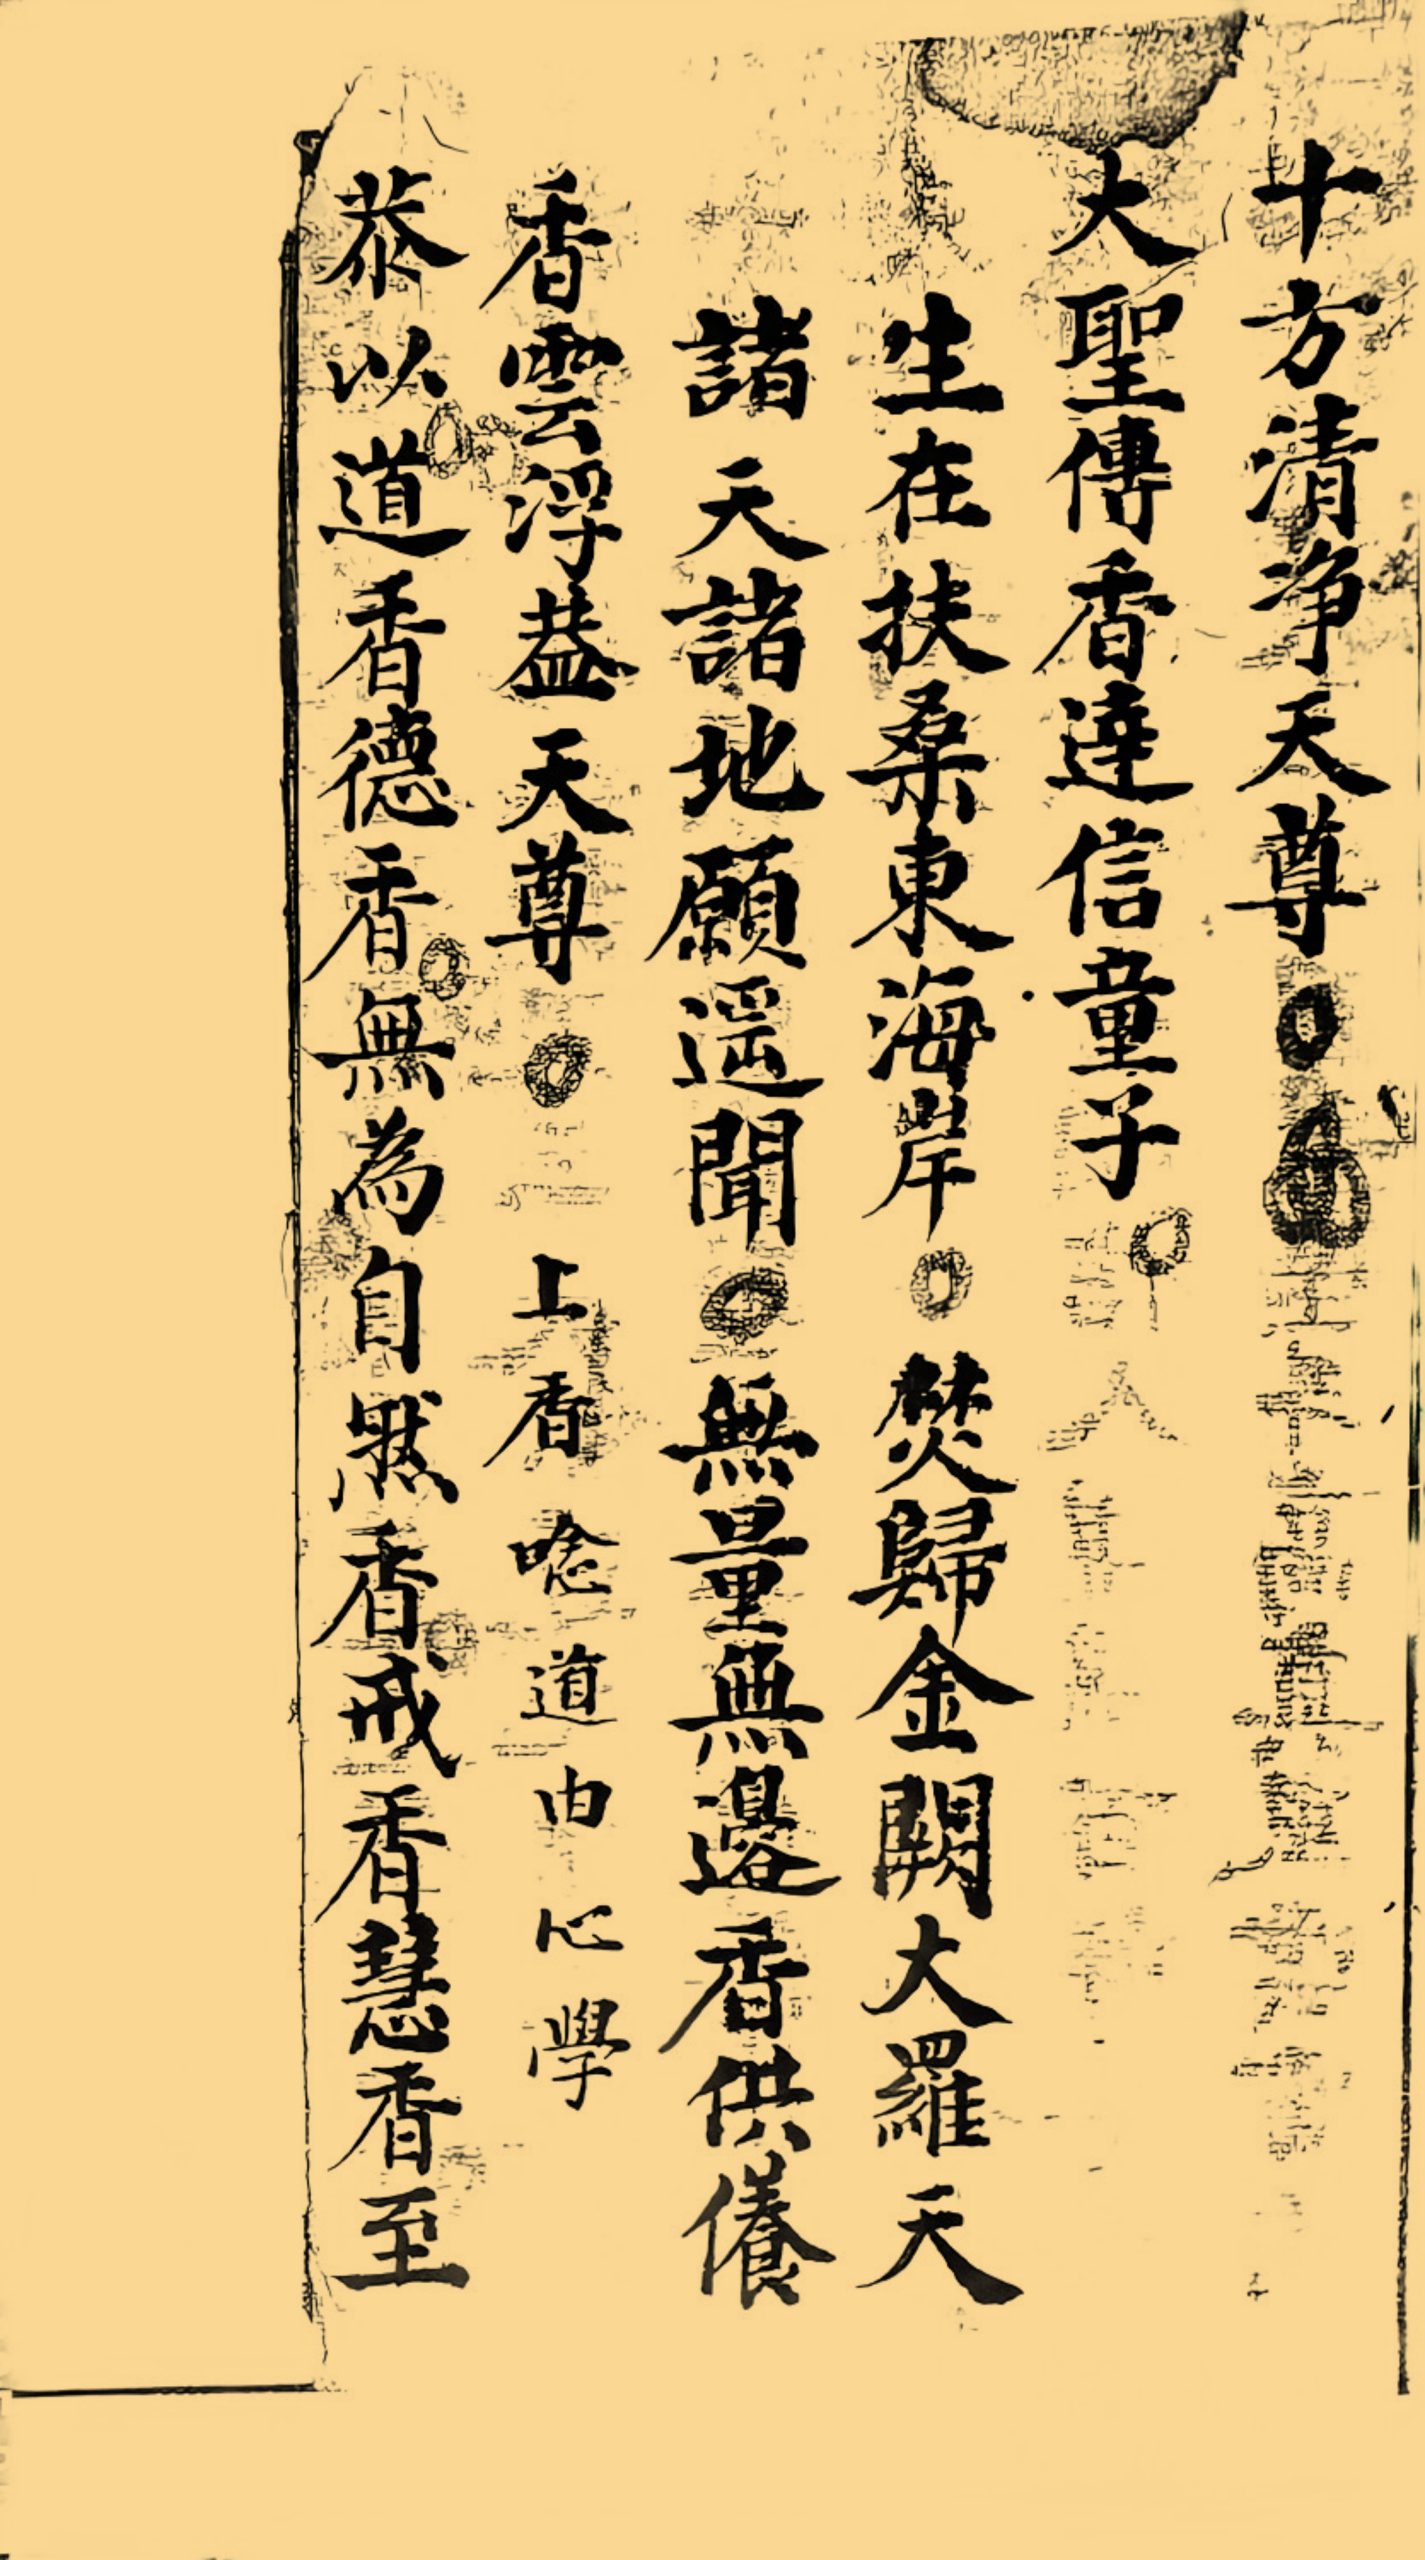 十方清净天尊
大聖傳香達信童子
生在扶桑東海岸 焚歸金闕大羅天
諸天諸地願遥聞 無量無邊香供養
香雲浮葢天尊 上香唸道由心學
恭以道香德香無為自然香戒香慧香至